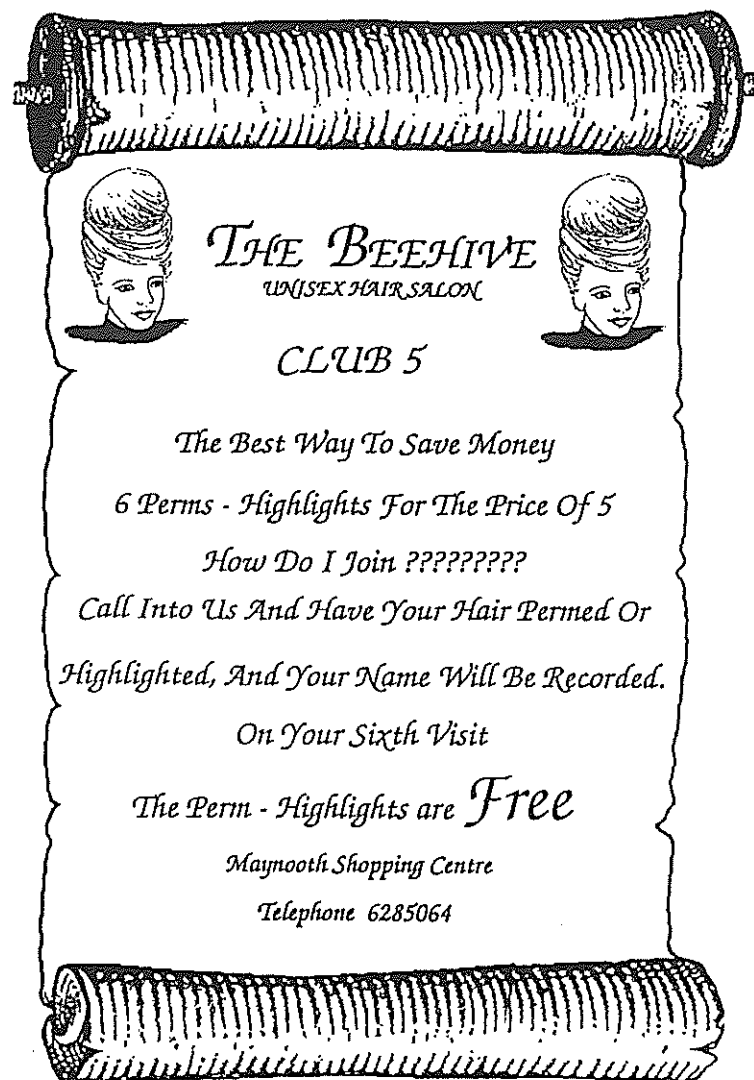 THE BEEHIVE
UNISEX HAIR SALON
CLUB 5
The Best Way To Save Money
6 Perms - Highlights For The Price Of 5
How Do I Join ?????????
Call Into Us And Have Your Hair Permed Or
Highlighted, And Your Name Will Be Recorded.
On Your Sixth Visit
The Perm - Highlights are Free
Maynooth Shopping Centre
Telephone 6285064